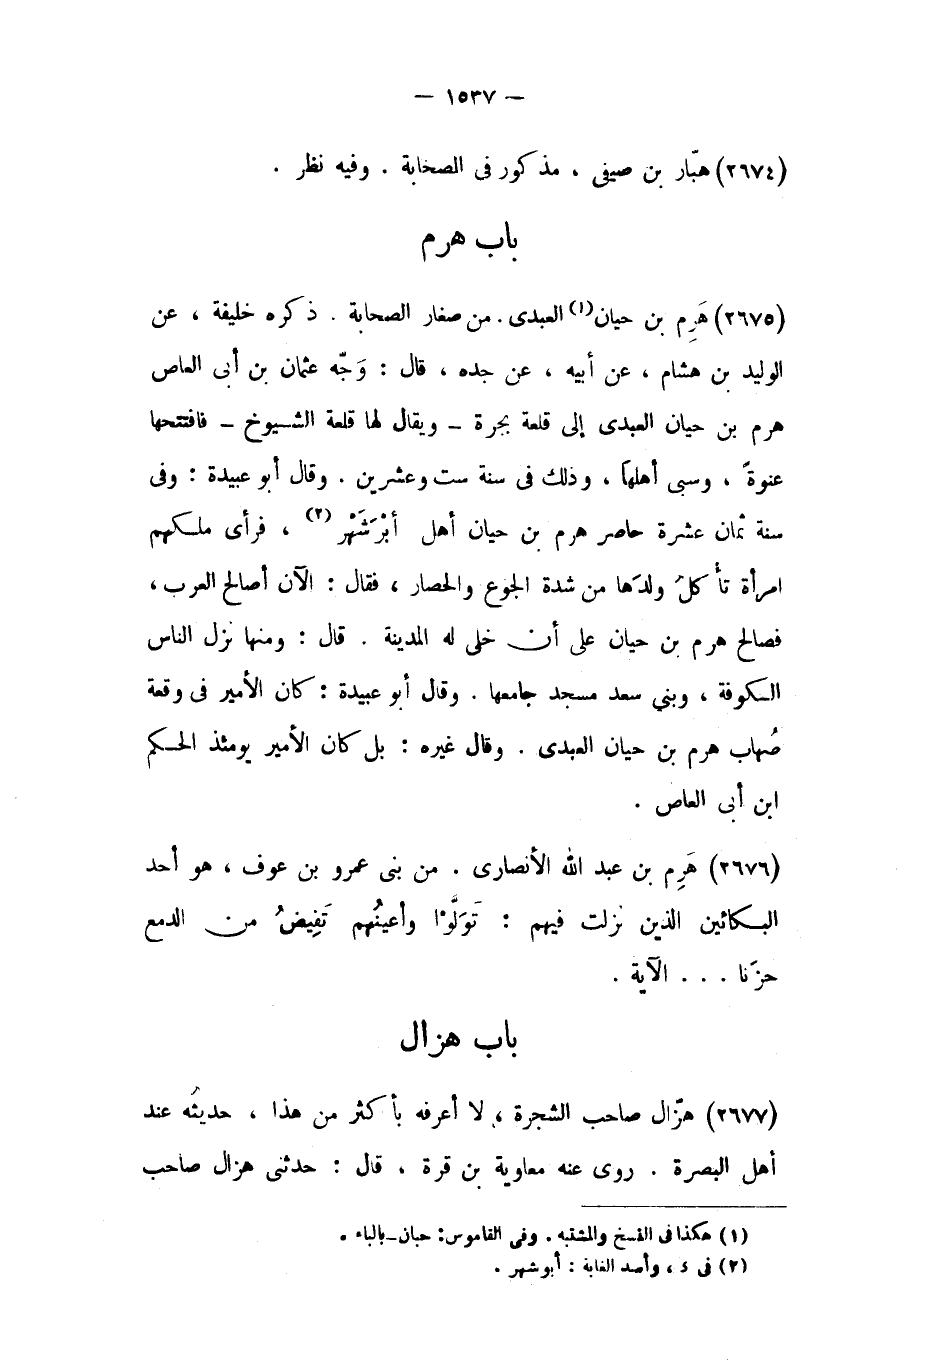 — ١٥٣٧ —
(٢٦٧٤) هبّار بن صيفى ، مذكور فى الصحابة . وفيه نظر .
باب هرم
(٢٦٧٥) هَرِم بن حيان(١) العبدى . من صغار الصحابة . ذكره خليفة ، عن
الوليد بن هشام ، عن أبيه ، عن جده ، قال : وَجّه عثمان بن أبى العاص
هرم بن حيان العبدى إلى قلعة بجرة – ويقال لها قلعة الشيوخ – فافتتحها
عنوةً ، وسبى أهلها ، وذلك فى سنة ست وعشرين . وقال أبو عبيدة : وفى
سنة ثمان عشرة حاصر هرم بن حيان أهل أبْرَشَهْر (٢) ، فرأى ملكهم
امرأة تأكلُ ولدَها من شدة الجوع والحصار ، فقال : الآن أصالح العرب ،
فصالح هرم بن حيان على أن خلى له المدينة . قال : ومنها نزل الناس
الكوفة ، وبني سعد مسجد جامعها . وقال أبو عبيدة : كان الأمير فى وقعة
صُهاب هرم بن حيان العبدى . وقال غيره : بل كان الأمير يومئذ الحكم
ابن أبى العاص .
(٢٦٧٦) هَرِم بن عبد الله الأنصارى . من بنى عمرو بن عوف ، هو أحد
البكائين الذين نزلت فيهم : تَوَلَّوْا وأعينُهم تَفِيضُ من الدمع
حزَنا . . . الآية .
باب هزال
(٢٦٧٧) هزّال صاحب الشجرة ، لا أعرفه بأكثر من هذا ، حديثُه عند
أهل البصرة . روى عنه معاوية بن قرة ، قال : حدثنى هزال صاحب
(١) هكذا فى النسخ والمشتبه . وفى القاموس: حبان–بالباء .
(٢) فى ء ، وأسد الغابة : أبوشهر .